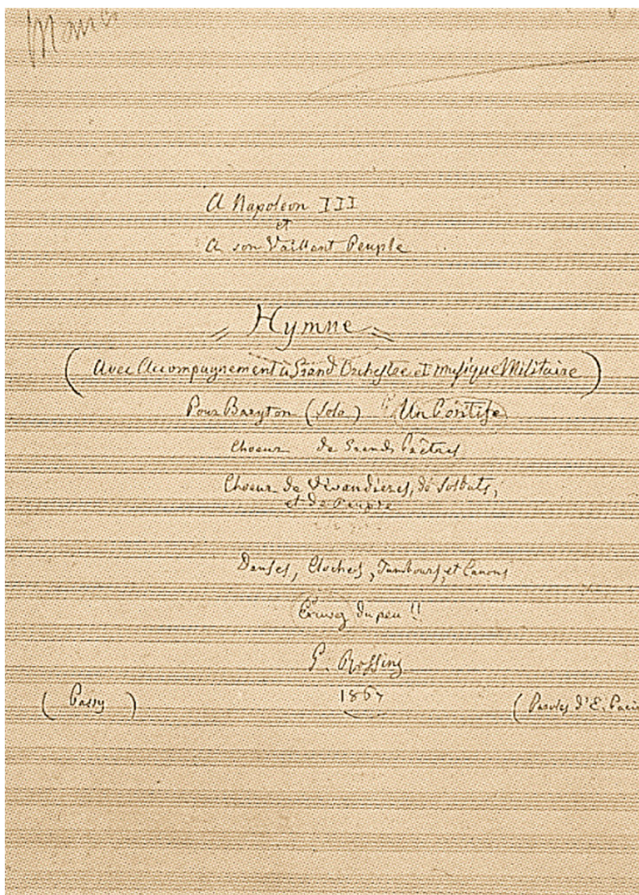 A Napoléon III
et
A son Vaillant Peuple
Hymne
(Avec Accompagnement à Grand Orchestre et musique Militaire)
Pour Baryton (Solo) Un Pontife
Choeur de Grands Prêtres
Choeur de Vivandières, de Soldats,
et de Peuple
Danses, Cloches, Tambours, et Canons
Excusez du peu !!
G. Rossini
1867
(Passy) (Paroles d'E. Paci